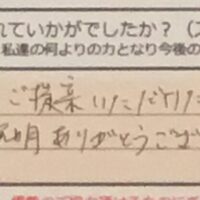 れていかがでしたか？（ス
私達の何よりの力となり今後の
ご提案いただけ
説明ありがとうござ